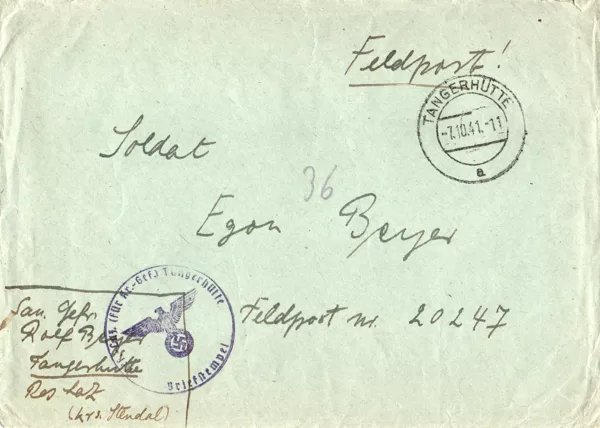 Feldpost!
TANGERHÜTTE
-7.10.41.-11
a
Soldat
36
Egon Beyer
Feldpost nr. 20247
Res. (für Kr.-Gef.) Tangerhütte
Briefstempel
San. Gefr.
Rolf Beyer
Tangerhütte
Res Laz
(Krs. Stendal)